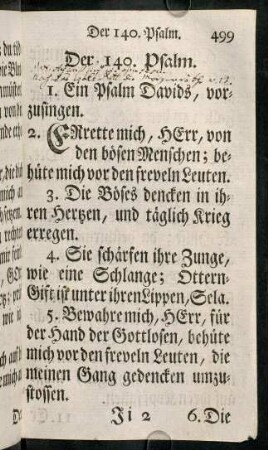 Der 140. Psalm. 499
Der 140. Psalm.
1. Ein Psalm Davids, vor-
zusingen.
2. ERrette mich, HErr, von
den bösen Menschen; be-
hüte mich vor den freveln Leuten.
3. Die Böses dencken in ih-
ren Hertzen, und täglich Krieg
erregen.
4. Sie schärfen ihre Zunge,
wie eine Schlange; Ottern-
Gift ist unter ihren Lippen, Sela.
5. Bewahre mich, HErr, für
der Hand der Gottlosen, behüte
mich vor den freveln Leuten, die
meinen Gang gedencken umzu-
stossen.
Ji 2 6. Die